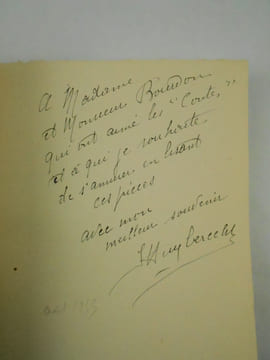 A Madame
et Monsieur Bourdon
qui ont aimé les "Contes"
et à qui je souhaite
de s'amuser en lisant
ces pièces
avec mon
meilleur souvenir